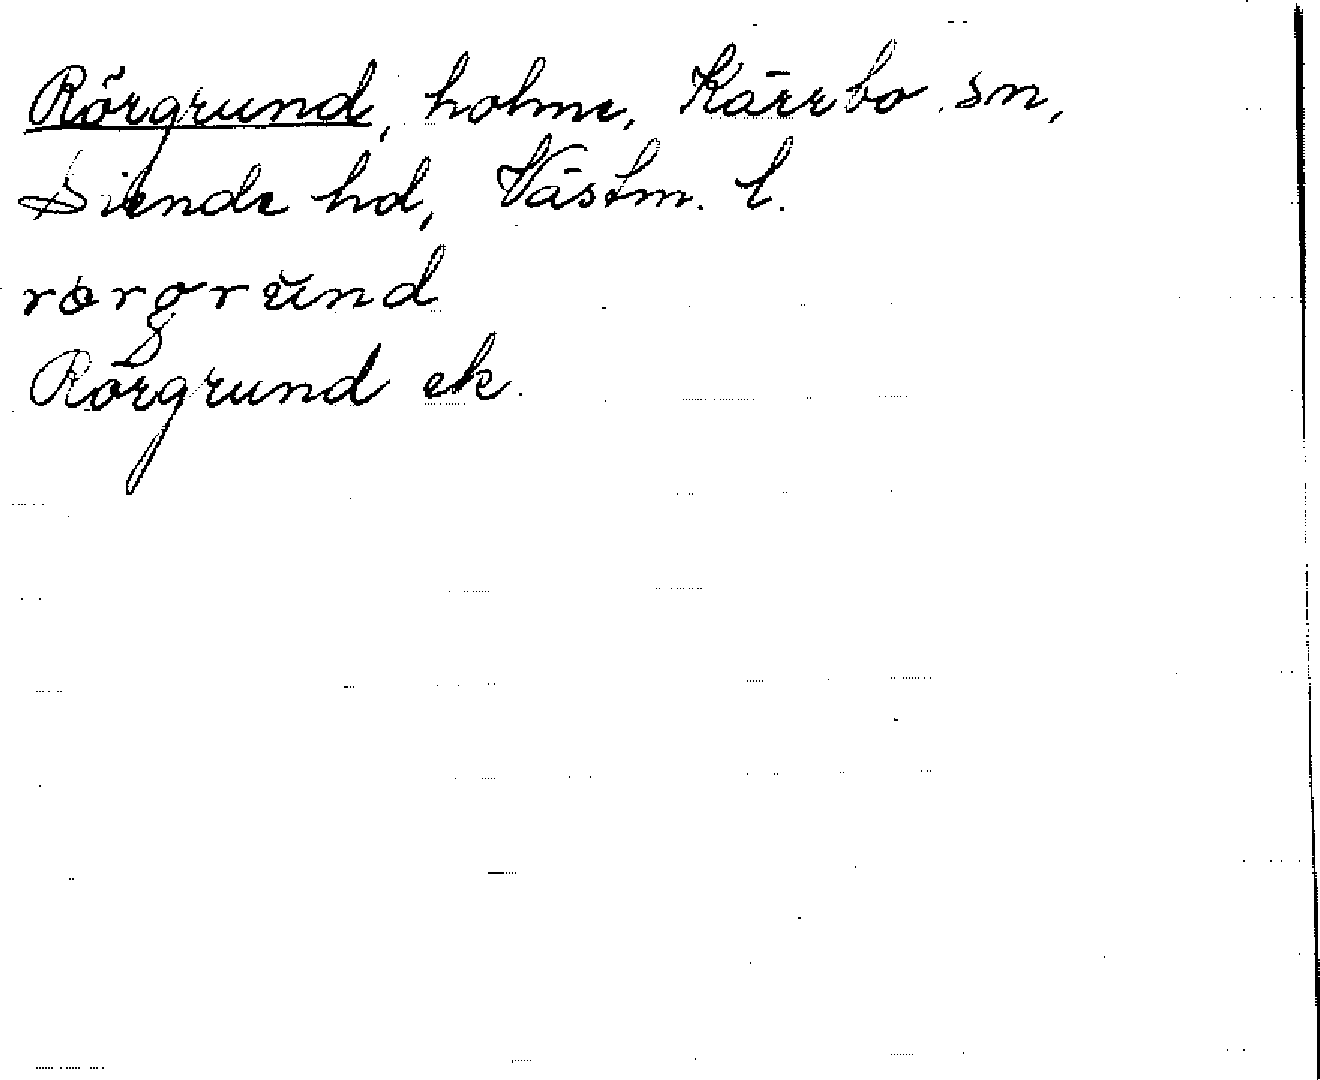 Rörgrund, holme, Kärrbo sn,
Siende hd, Västm. l.
rörgrŭnd
Rörgrund ek.